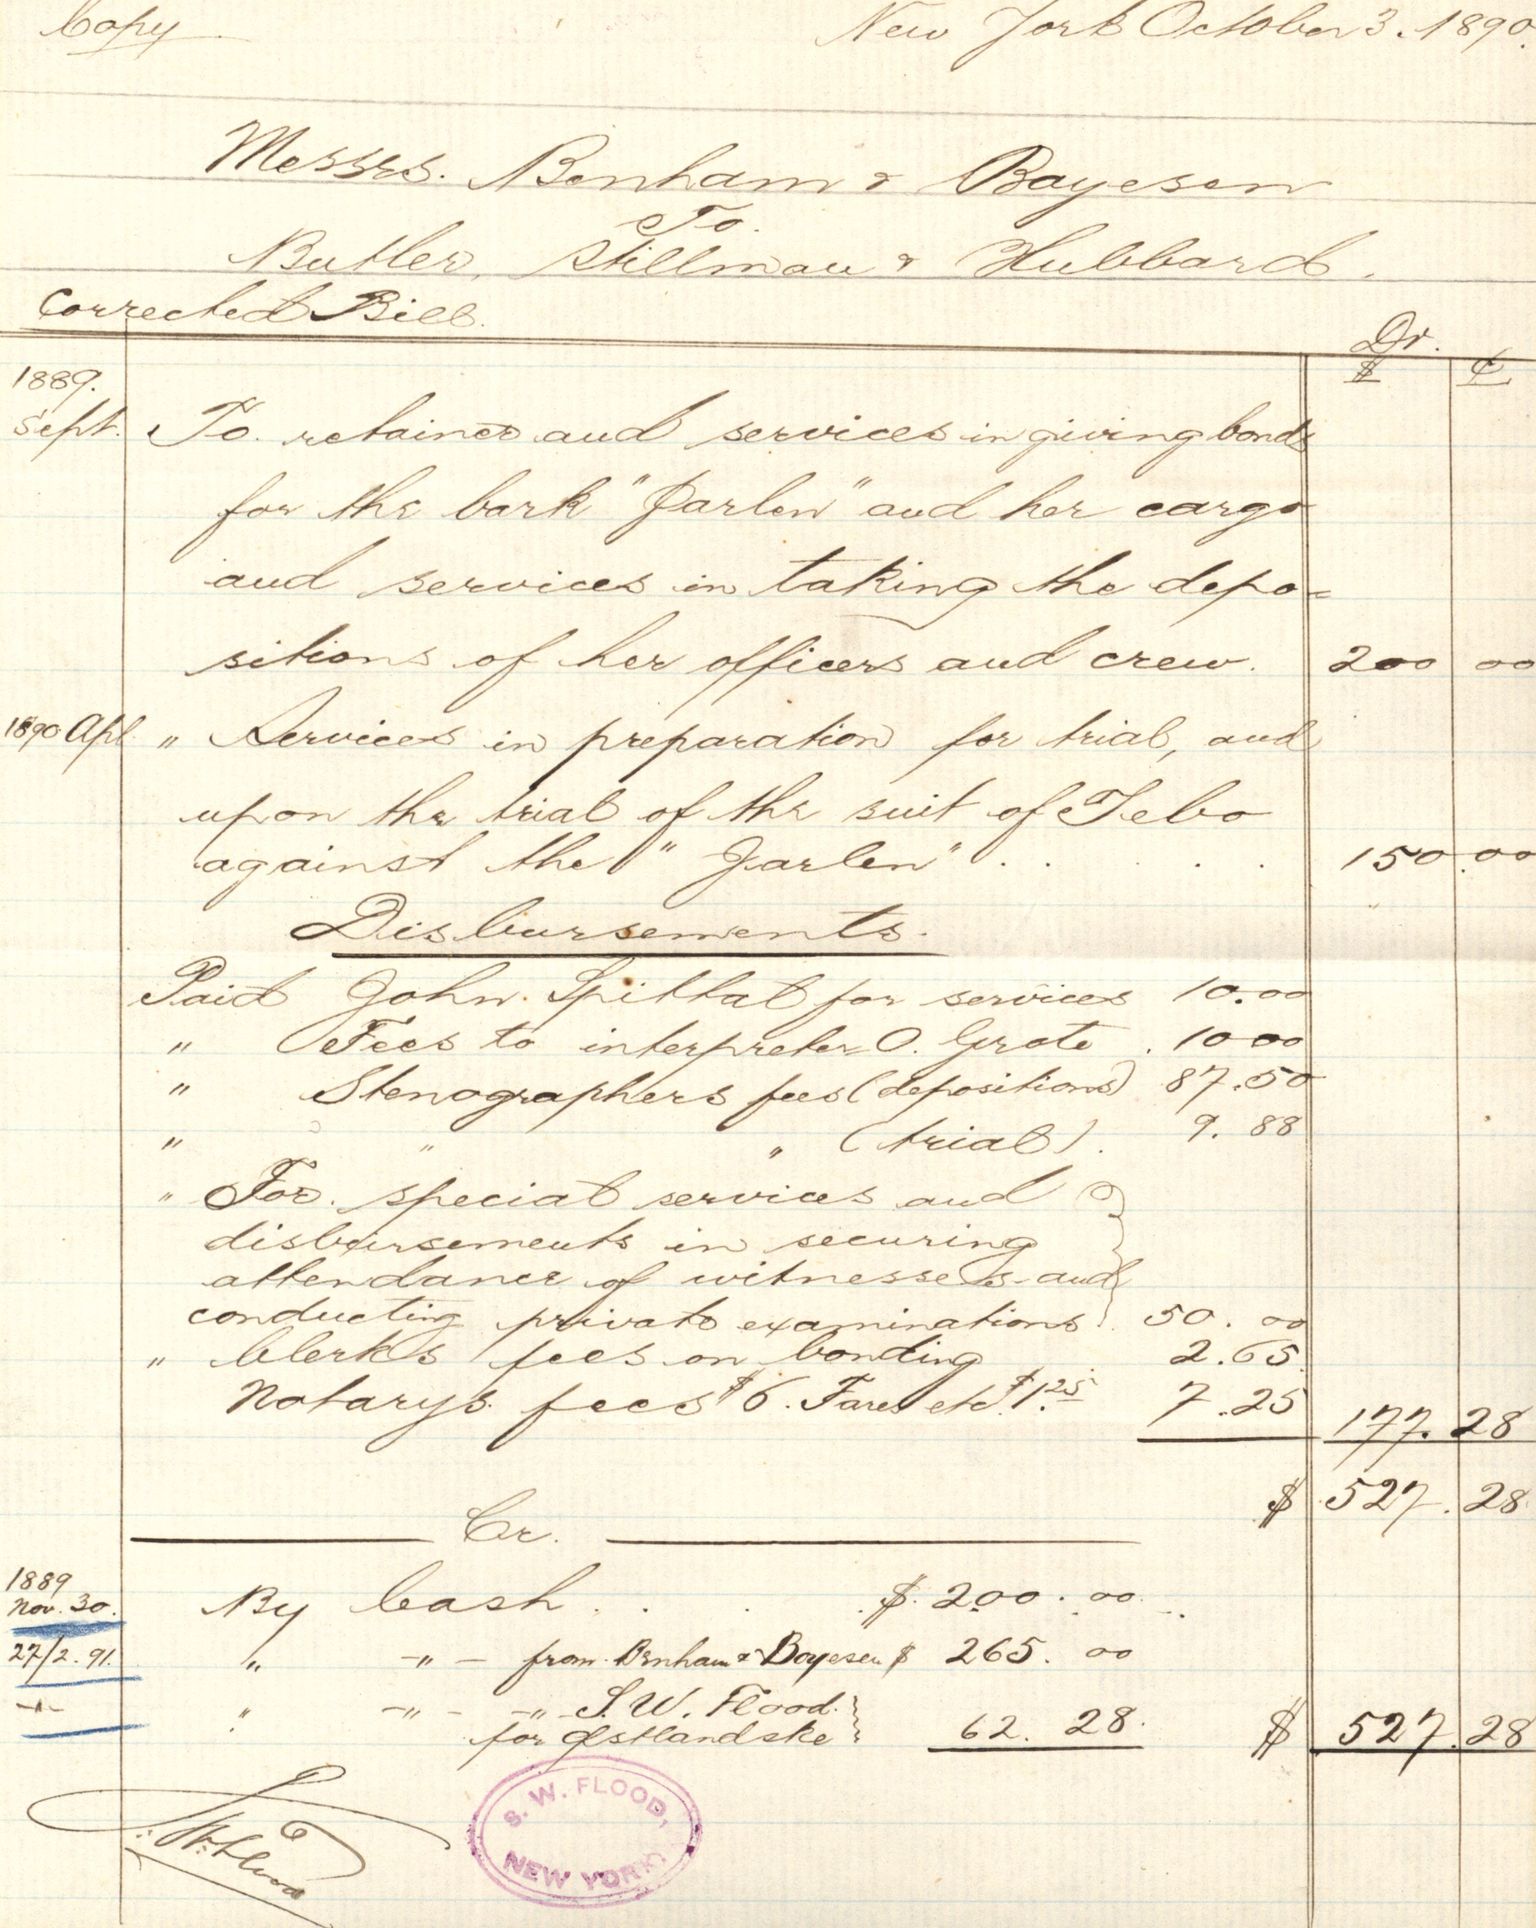 Copy
New York October 3. 1890.
Messrs. Benham & Boyesen
To.
Butler, Stillman & Hubbard.
Corrected Bill.
Dr.
$ ¢
1889.
Sept. To retainer and services in giving bonds
for the bark "Jarlen" and her cargo
and services in taking the depo=
sitions of her officers and crew. 200 00
1890 Apl. " Services in preparation for trial, and
upon the trial of the suit of Tebo
against the "Jarlen" . . . . . 150.00
Disbursements.
Paid John Spittal for services 10.00
" Fees to interpreter O. Grote . 10 00
" Stenographers fees (depositions) 87.50
" " " (trial). 9. 88
" For special services and
disbursements in securing
attendance of witnesses and
conducting private examinations 50. 00
" Clerk's fees on bonding 2.65
Notarys fees $6. Fares etc $1.25 7.25 177.28
$ 527.28
Cr.
1889
Nov. 30. By Cash . . . $.200.00
27/2.91. " -"- from Benham & Boyesen $ 265.00
-"- " -"- -"- S. W. Flood.
for Østlandske 62. 28. $ 527.28
S. W. Flood
S. W. FLOOD,
NEW YORK